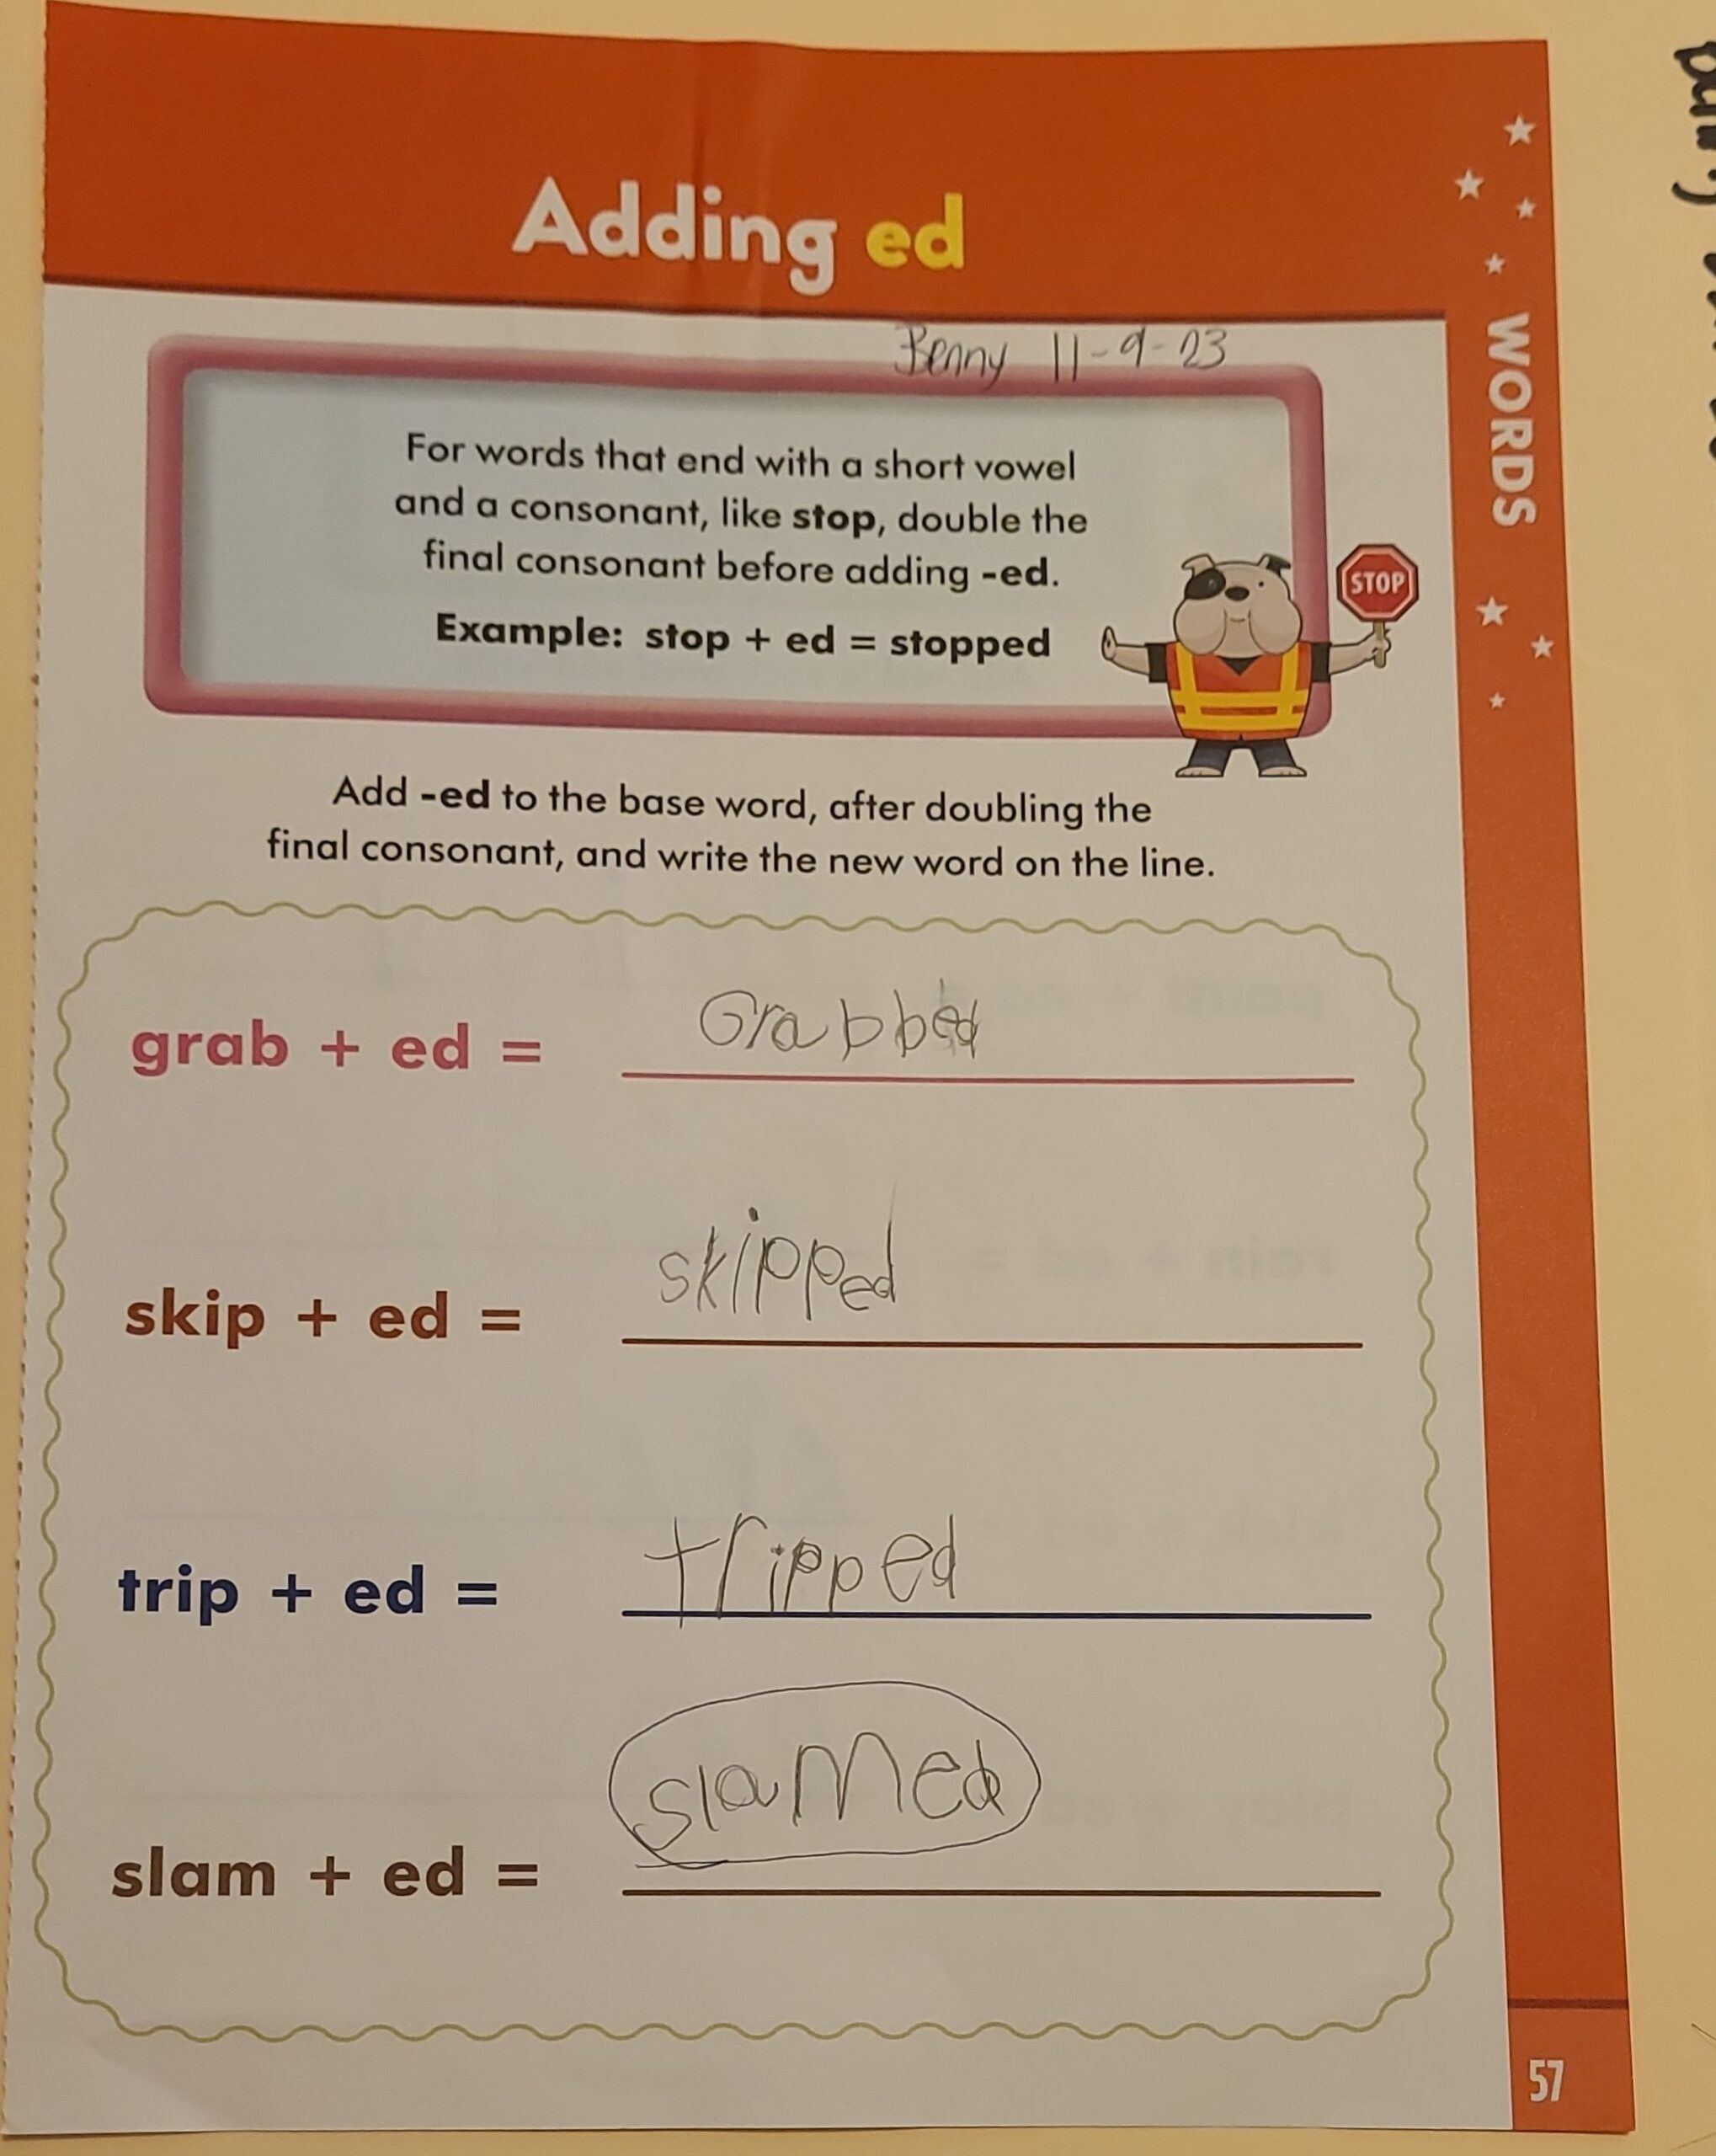 Adding ed
Benny 11-9-23
For words that end with a short vowel
and a consonant, like stop, double the
final consonant before adding -ed.
Example: stop + ed = stopped
STOP
WORDS
Add -ed to the base word, after doubling the
final consonant, and write the new word on the line.
grab + ed = Grabbed
skip + ed = skipped
trip + ed = tripped
slam + ed = slamed
57